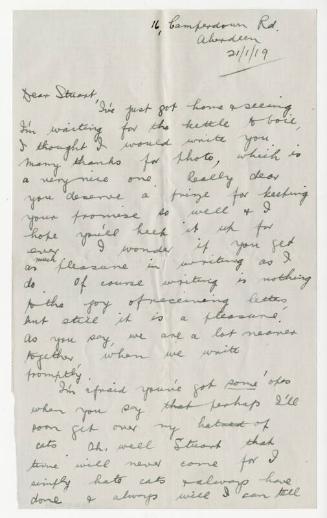 16, Camperdown Rd.
Aberdeen
21/1/19
Dear Stuart,
I've just got home & seeing
I'm waiting for the kettle to boil,
I thought I would write you.
Many thanks for photo, which is
a very nice one. Really dear
you deserve a prize for keeping
your promise so well & I
hope you'll keep it up for
ever. I wonder if you get
as much pleasure in writing as I
do. Of course writing is nothing
to the joy of receiving letters
but still it is a pleasure.
As you say, we are a lot nearer
together, when we write
promptly.
I'm afraid you've got some 'ops
when you say that perhaps I'll
soon get over my hatred of
cats. Ah, well Stuart that
time will never come for I
simply hate cats & always have
done & always will I can tell